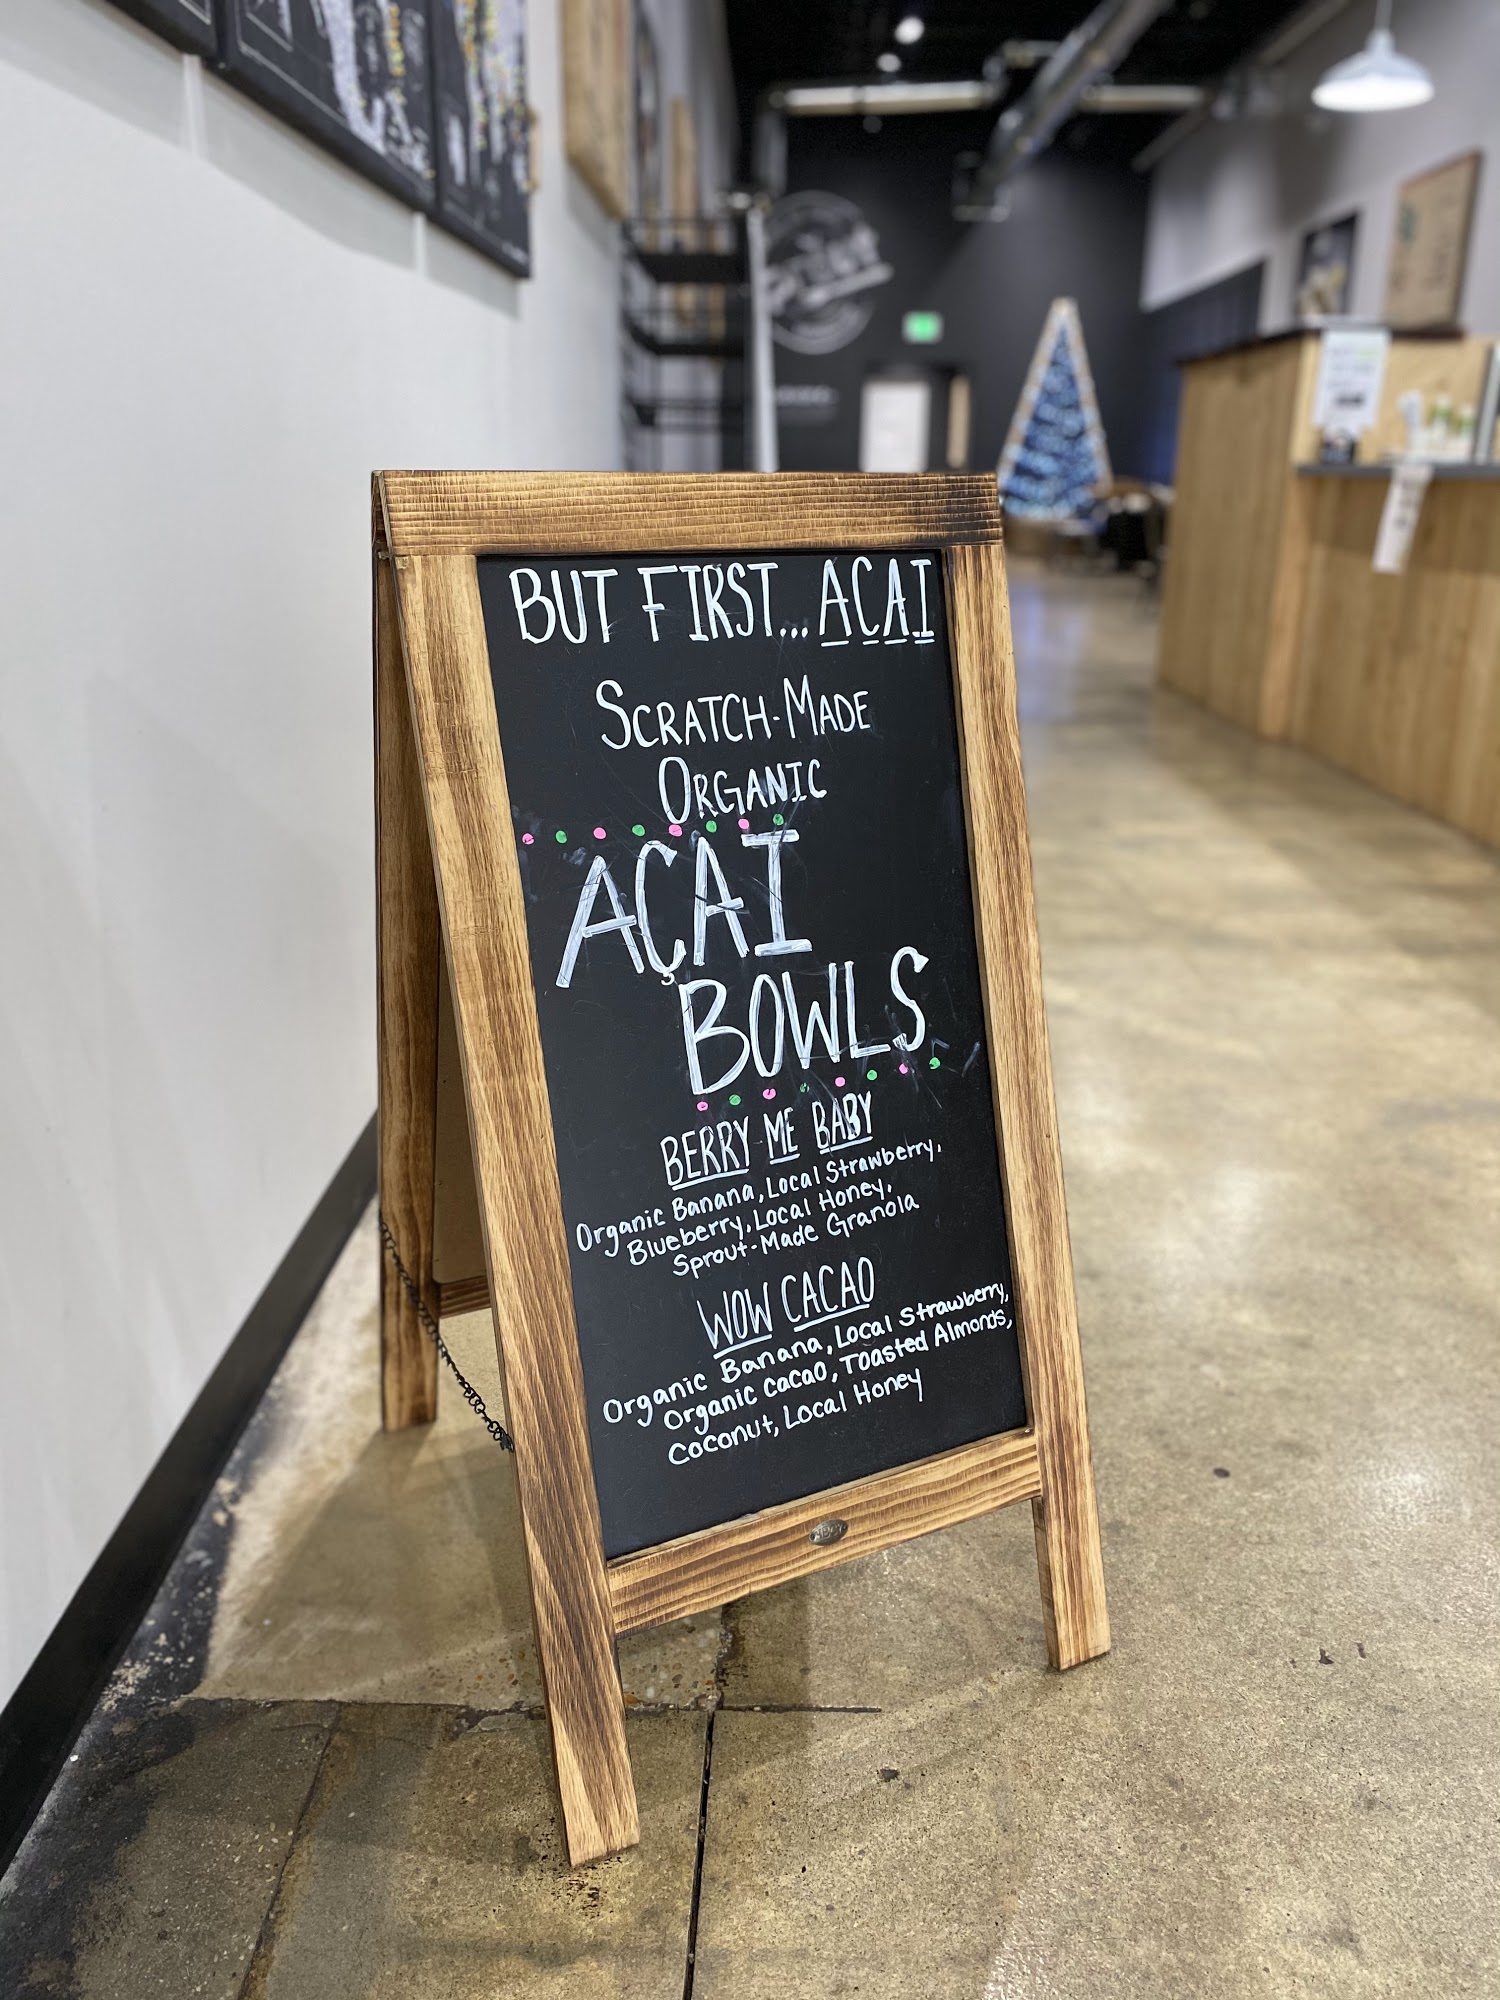 BUT FIRST... ACAI
SCRATCH-MADE
ORGANIC
AÇAI
BOWLS
BERRY ME BABY
Organic Banana, Local Strawberry,
Blueberry, Local Honey,
Sprout-Made Granola
WOW CACAO
Organic Banana, Local Strawberry,
Organic cacao, Toasted Almonds,
Coconut, Local Honey